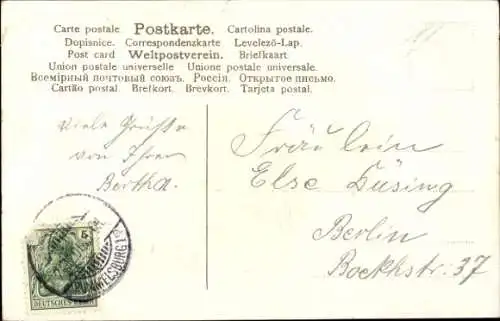 Carte postale Postkarte. Cartolina postale.
Dopisnice. Correspondenzkarte Levelező-Lap.
Post card Weltpostverein. Briefkaart.
Union postale universelle Unione postale universale.
Всемірный почтовый союзъ. Россія. Открытое письмо.
Cartão postal. Brefkort. Brevkort. Tarjeta postal.
Viele Grüße
von Ihrer
Bertha.
Fräulein
Else Düsing
Berlin
Boeckhstr: 37
5
DEUTSCHES REICH
RUMMELSBURG